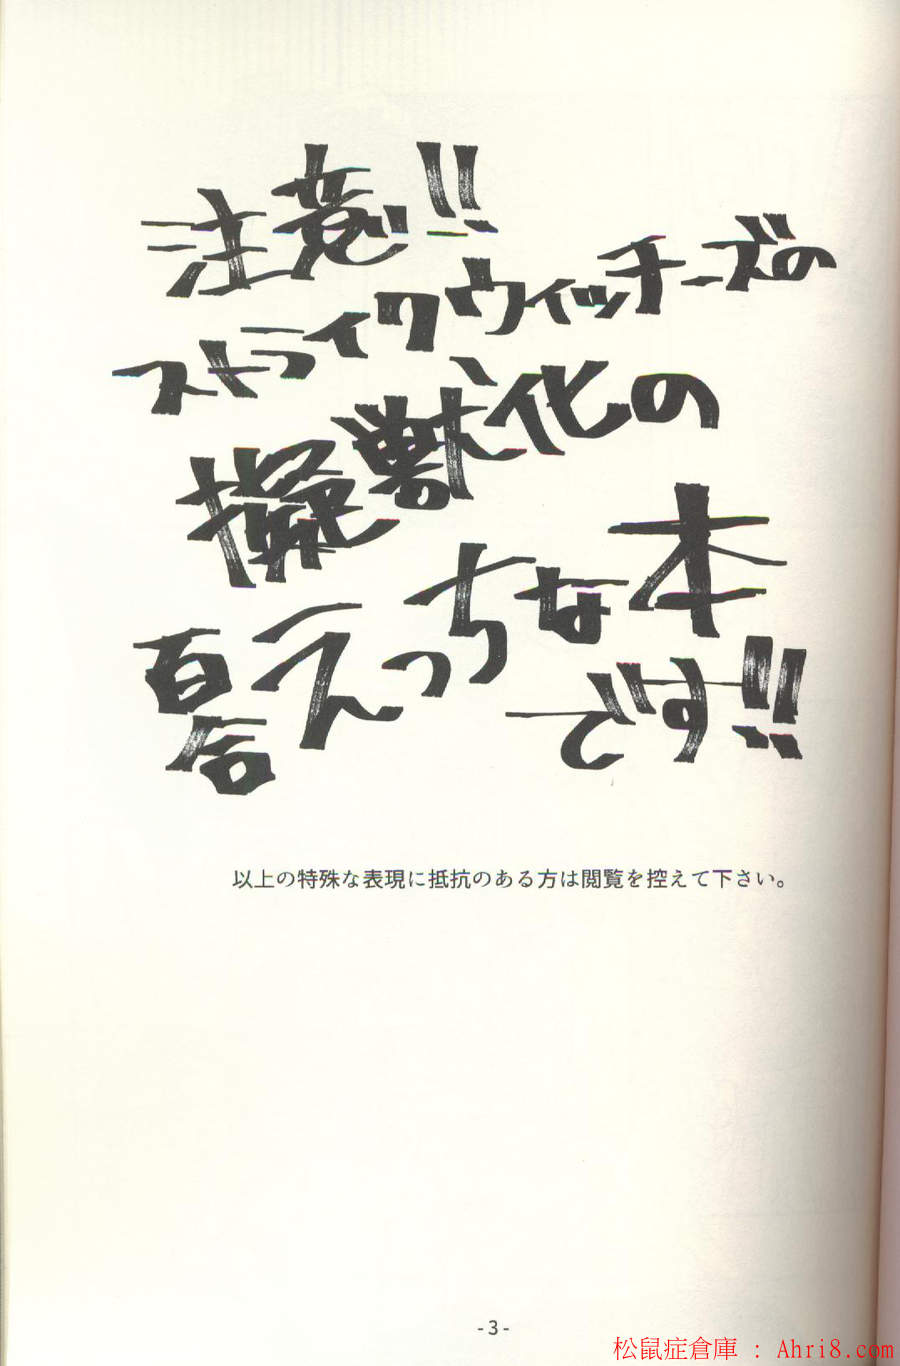 注意!!
ストライクウィッチーズの
擬獣化の
百合えっちな本
です!!
以上の特殊な表現に抵抗のある方は閲覧を控えて下さい。
-3-
松鼠症倉庫 : Ahri8.com